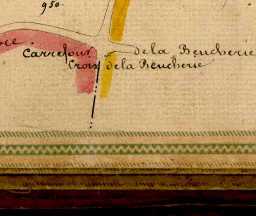 950.
Carrefour de la Boucherie
Croix de la Boucherie